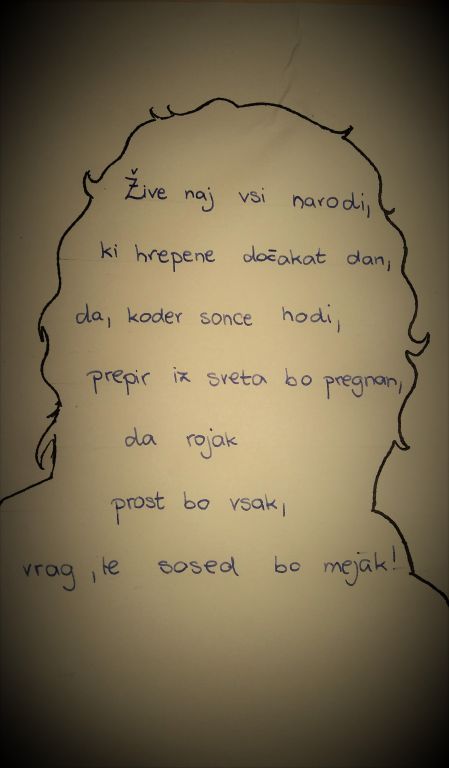 Žive naj vsi narodi,
ki hrepene dočakat dan,
da, koder sonce hodi,
prepir iz sveta bo pregnan,
da rojak
prost bo vsak,
vrag ,le sosed bo mejak!